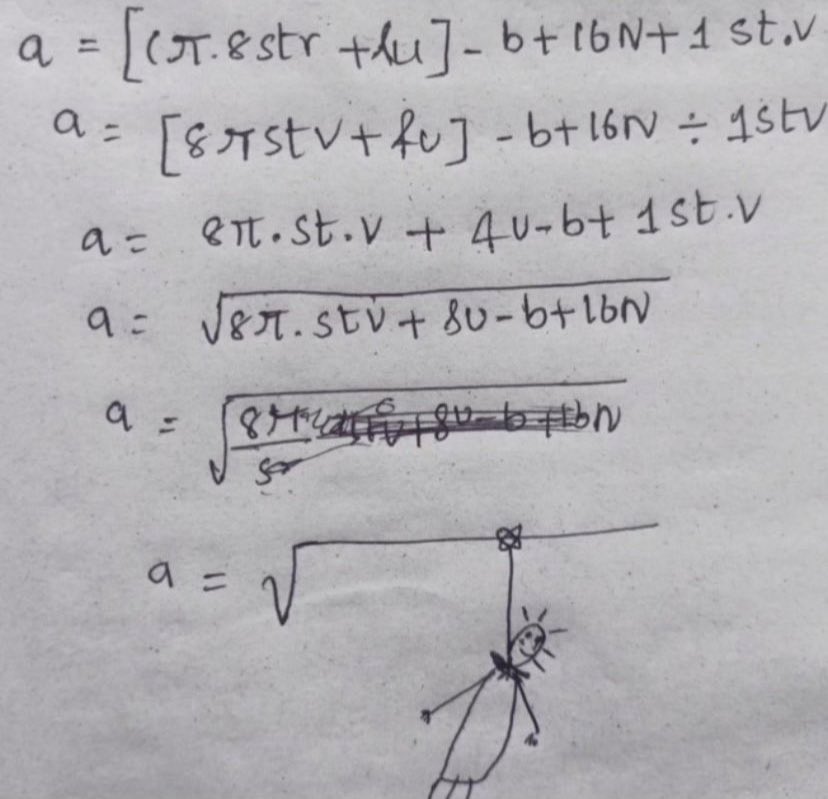 a = [(π.8str + fu] - b + 16N + 1 st.v
a = [8πstv + fu] - b + 16N ÷ 1stv
a = 8π.st.v + 4u - b + 1st.v
a = √8π.stv + 8u - b + 16N
a = √8π
a = √